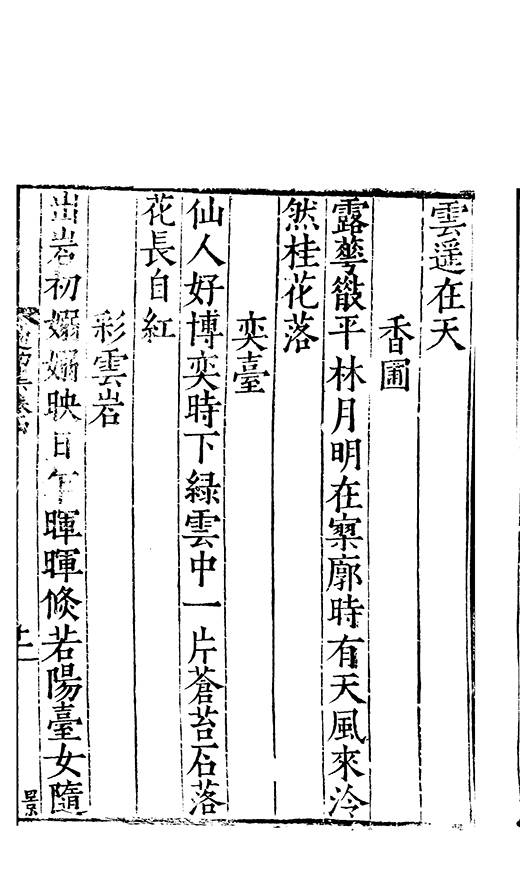 雲遥在天
香圃
露萼散平林月明在寥廓時有天風來泠
然桂花落
奕臺
仙人好博奕時下綠雲中一片蒼苔石落
花長自紅
彩雲岩
出岩初嫋嫋映日乍暉暉倐若陽臺女隨
十一
景